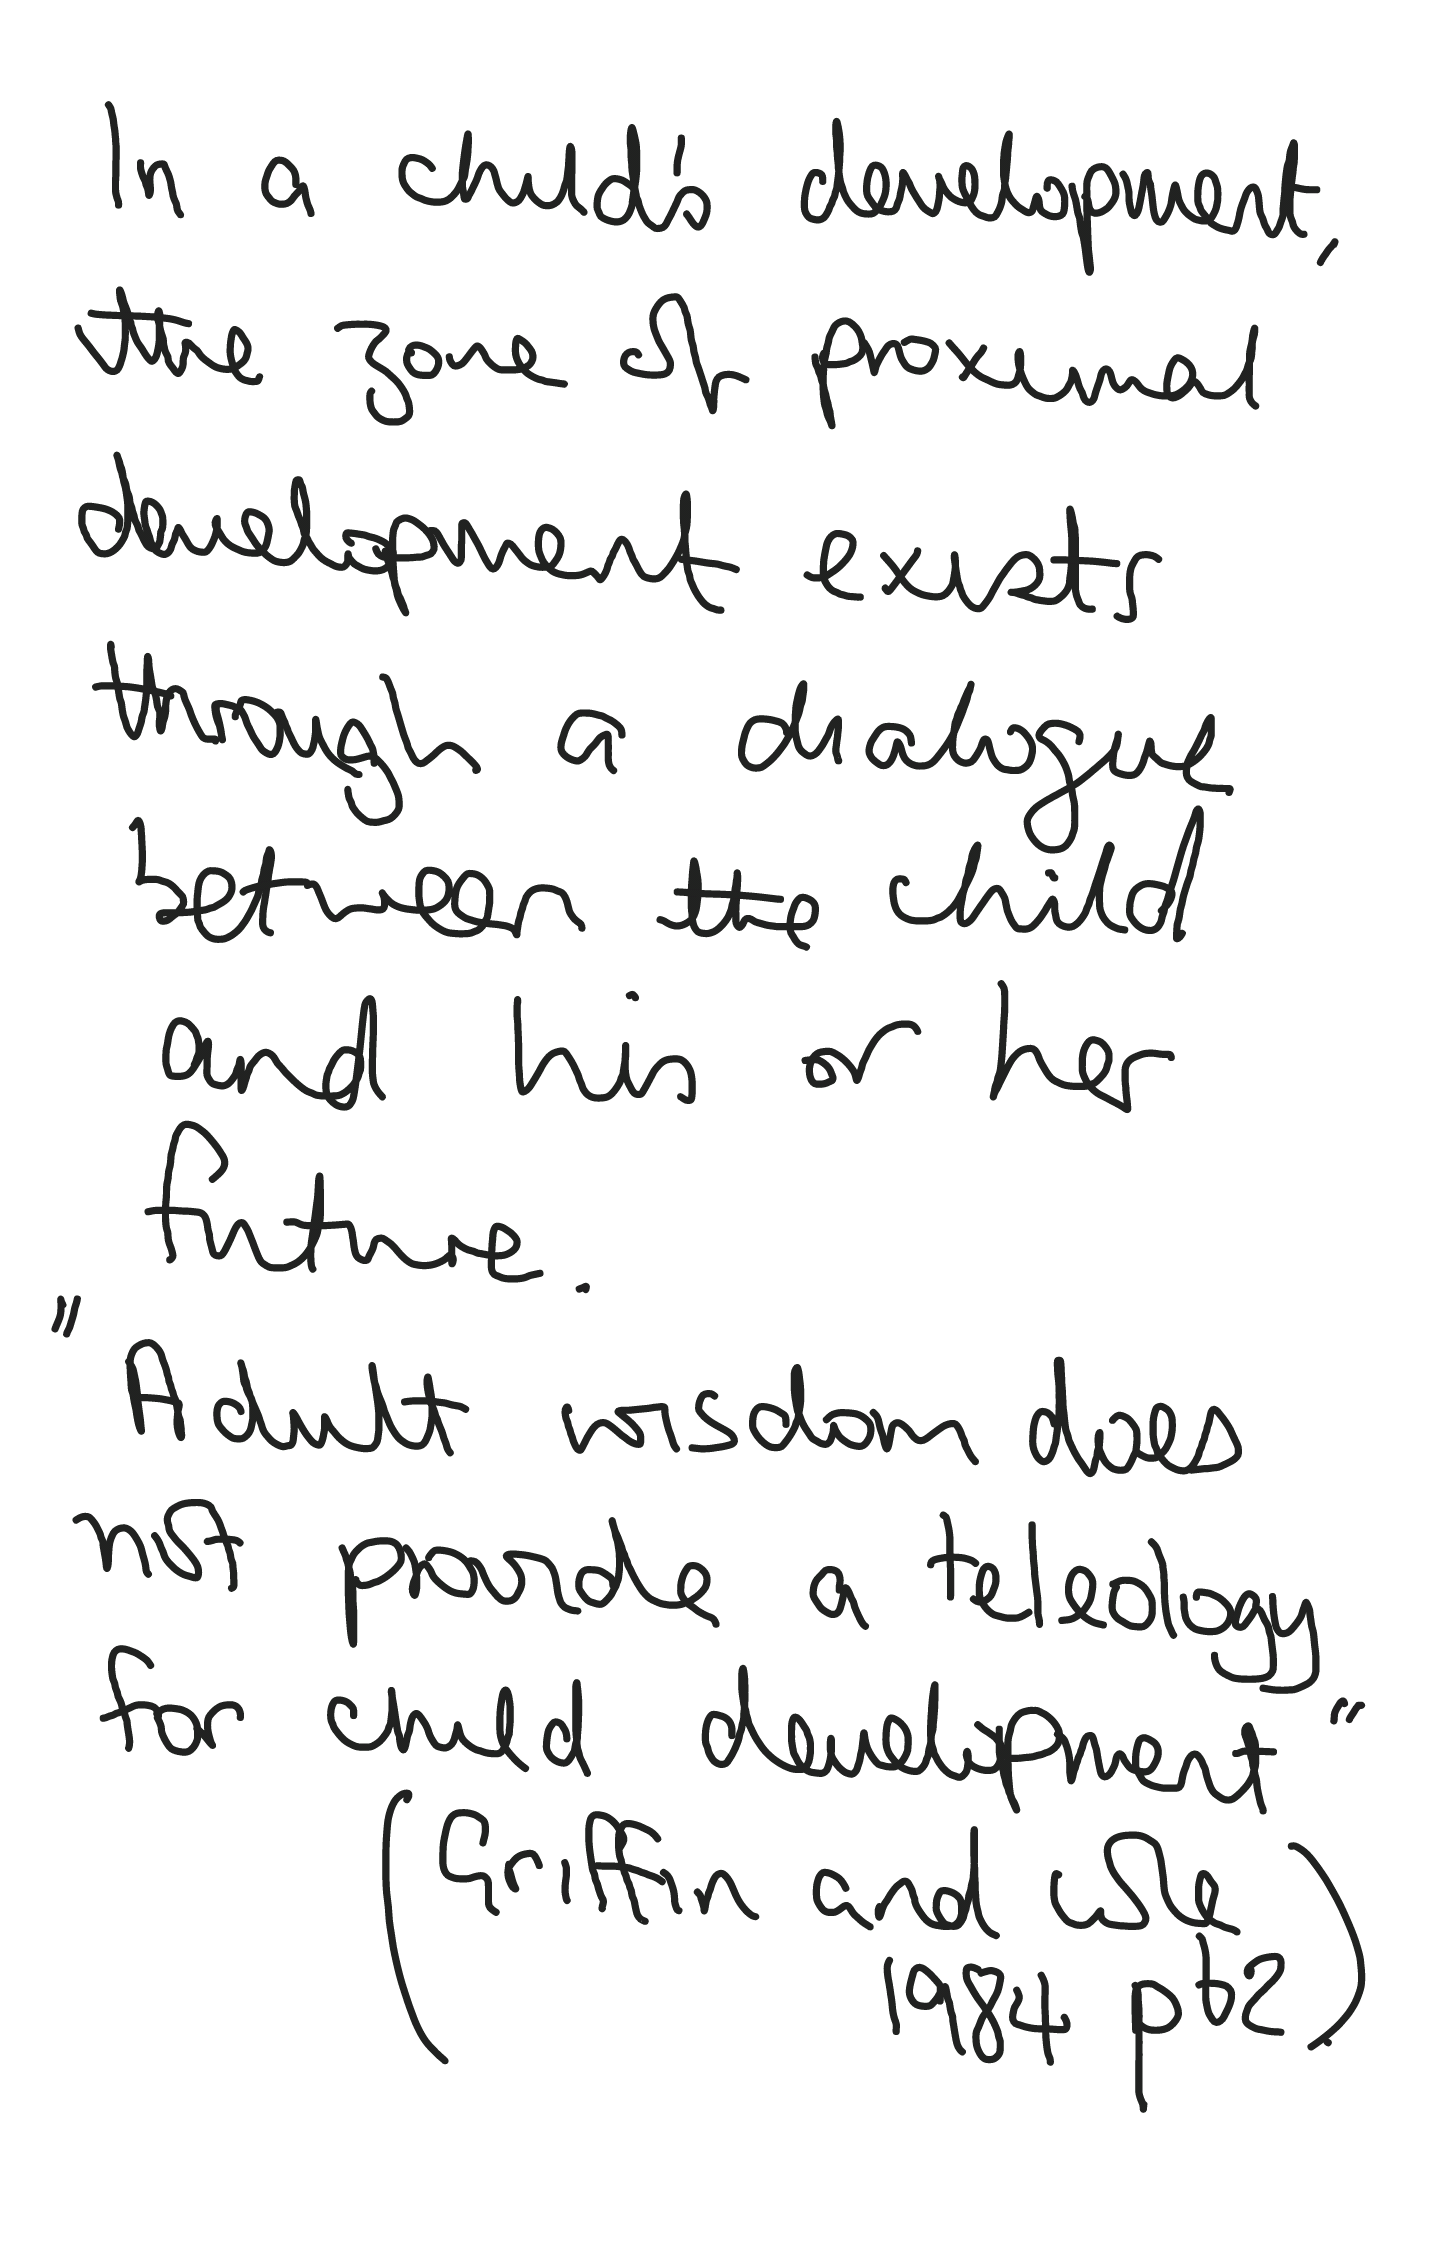 In a child's development,
the zone of proximal
development exists
through a dialogue
between the child
and his or her
future.
"Adult wisdom does
not provide a teleology
for child development"
(Griffin and Cole
1984 p62)